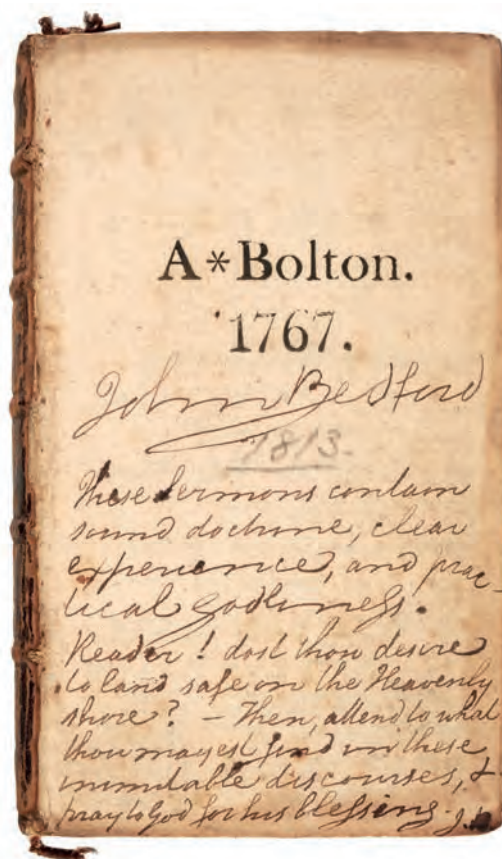 A*Bolton.
1767.
John Bedford
1813.
These Sermons contain
sound doctrine, clear
experience, and prac-
tical godliness.
Reader! dost thou desire
to land safe on the Heavenly
shore? – Then, attend to what
thou mayest find in these
inimitable discourses, &
pray to God for his blessing. J.B.